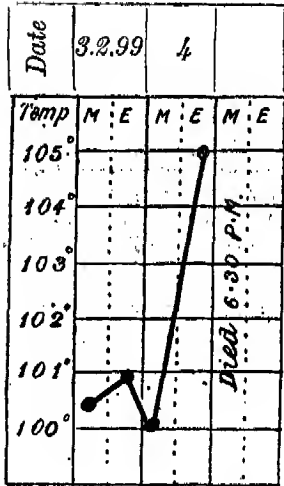 Date 3.2.99 4
Temp M E M E M E
105°
104°
103°
102°
101°
100°
Died 6·30 P.M.